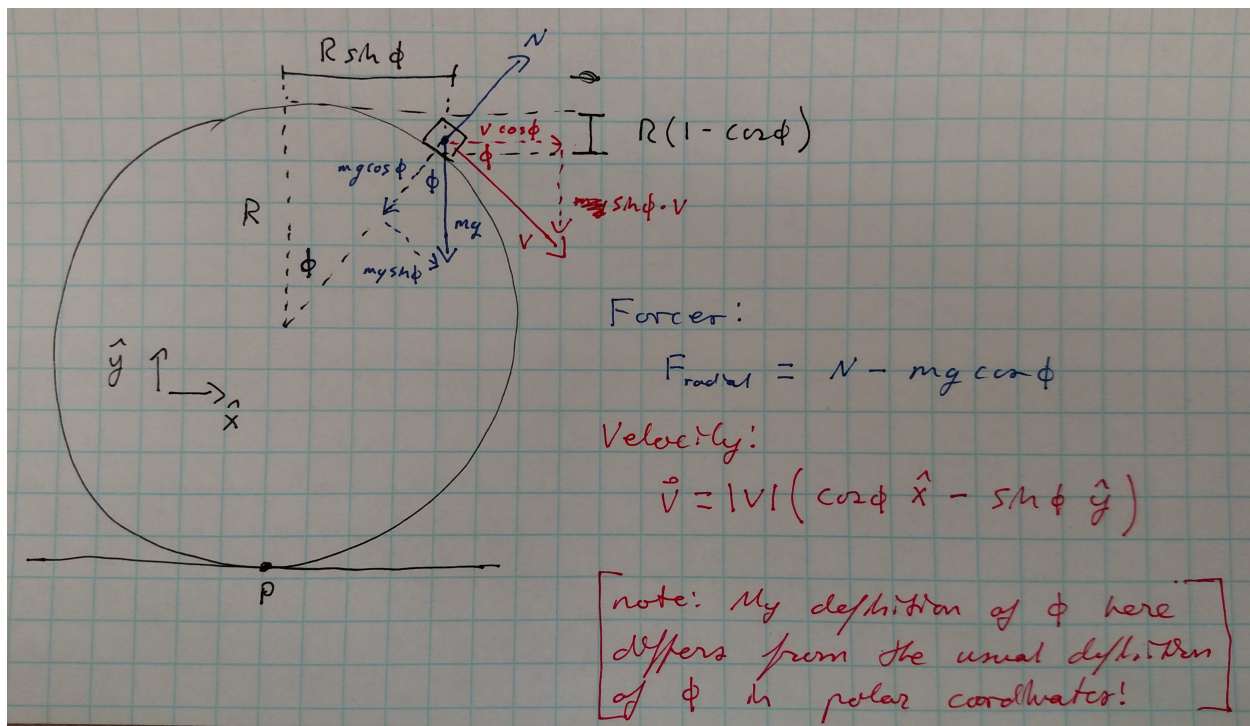 R sin φ
N
v cos φ
φ
R(1 - cos φ)
mg cos φ
φ
sin φ · v
R
mg
v
φ
mg sin φ
Forces:
ŷ
F radial = N - mg cos φ
x̂
Velocity:
v⃗ = |v| ( cos φ x̂ - sin φ ŷ )
P
[note: My definition of φ here
differs from the usual definition
of φ in polar coordinates!]